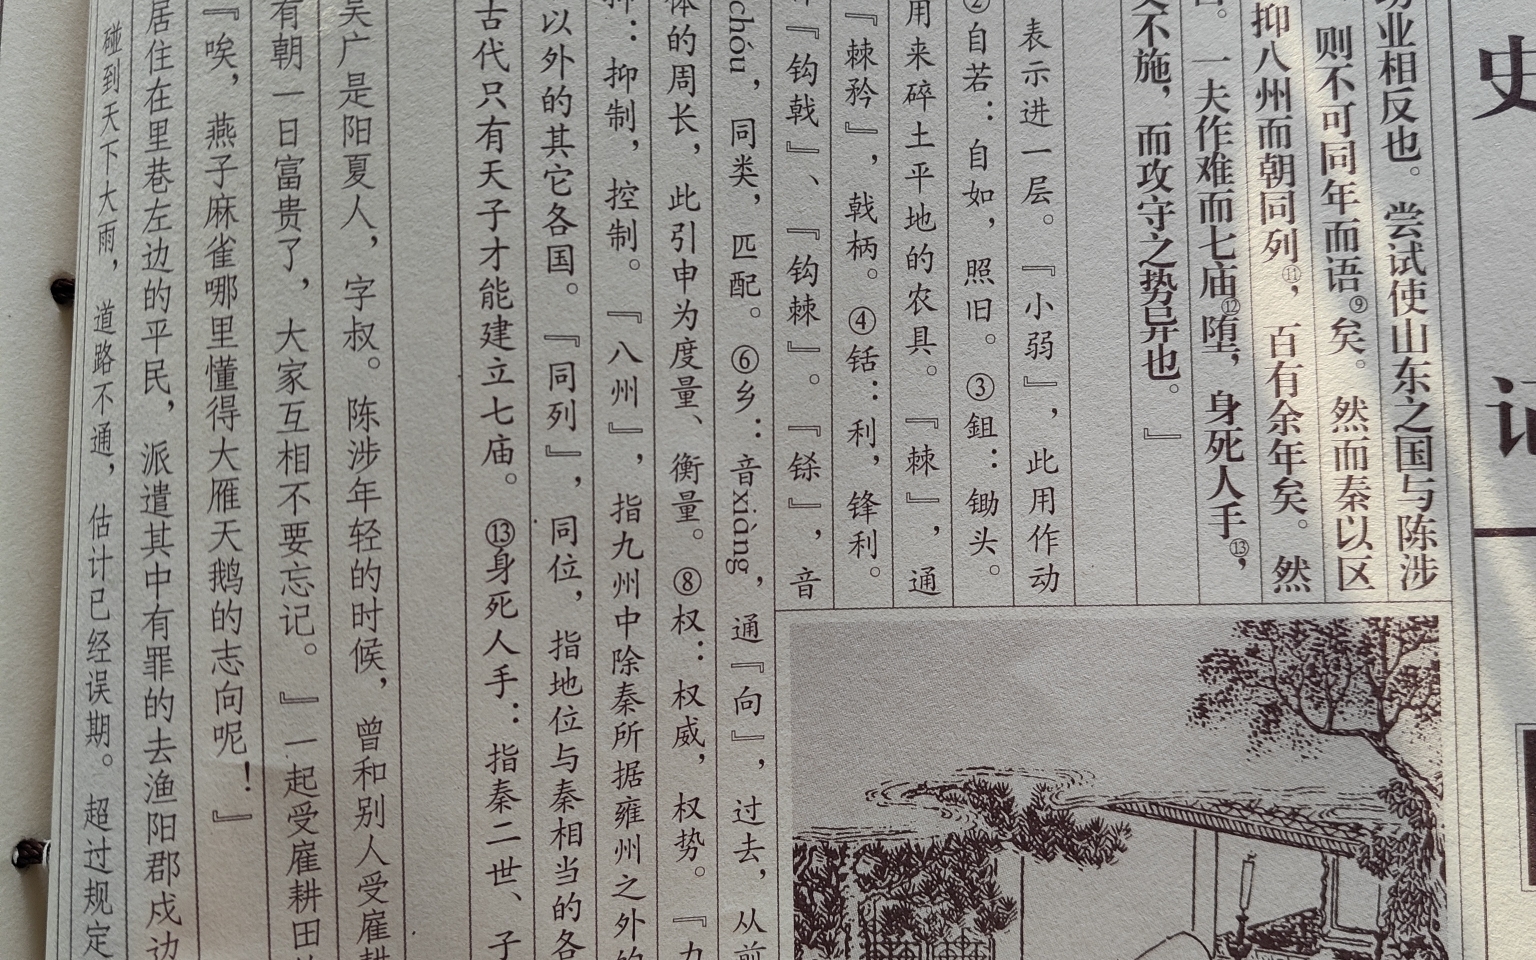 史记
功业相反也。尝试使山东之国与陈涉
则不可同年而语⑨矣。然而秦以区
抑八州而朝同列⑪，百有余年矣。然
一夫作难而七庙⑫堕，身死人手⑬，
不施，而攻守之势异也。』
表示进一层。『小弱』，此用作动
②自若：自如，照旧。③鉏：锄头。
用来碎土平地的农具。『棘』，通
『棘矜』，戟柄。④铦：利，锋利。
『钩戟』、『钩棘』。『铩』，音
chóu，同类，匹配。⑥乡：音xiàng，通『向』，过去，从前
体的周长，此引申为度量、衡量。⑧权：权威，权势。『九
抑：抑制，控制。『八州』，指九州中除秦所据雍州之外的
以外的其它各国。『同列』，同位，指地位与秦相当的各
古代只有天子才能建立七庙。⑬身死人手：指秦二世、子
吴广是阳夏人，字叔。陈涉年轻的时候，曾和别人受雇耕
有朝一日富贵了，大家互相不要忘记。』一起受雇耕田
『唉，燕子麻雀哪里懂得大雁天鹅的志向呢！』
居住在里巷左边的平民，派遣其中有罪的去渔阳郡戍边
碰到天下大雨，道路不通，估计已经误期。超过规定